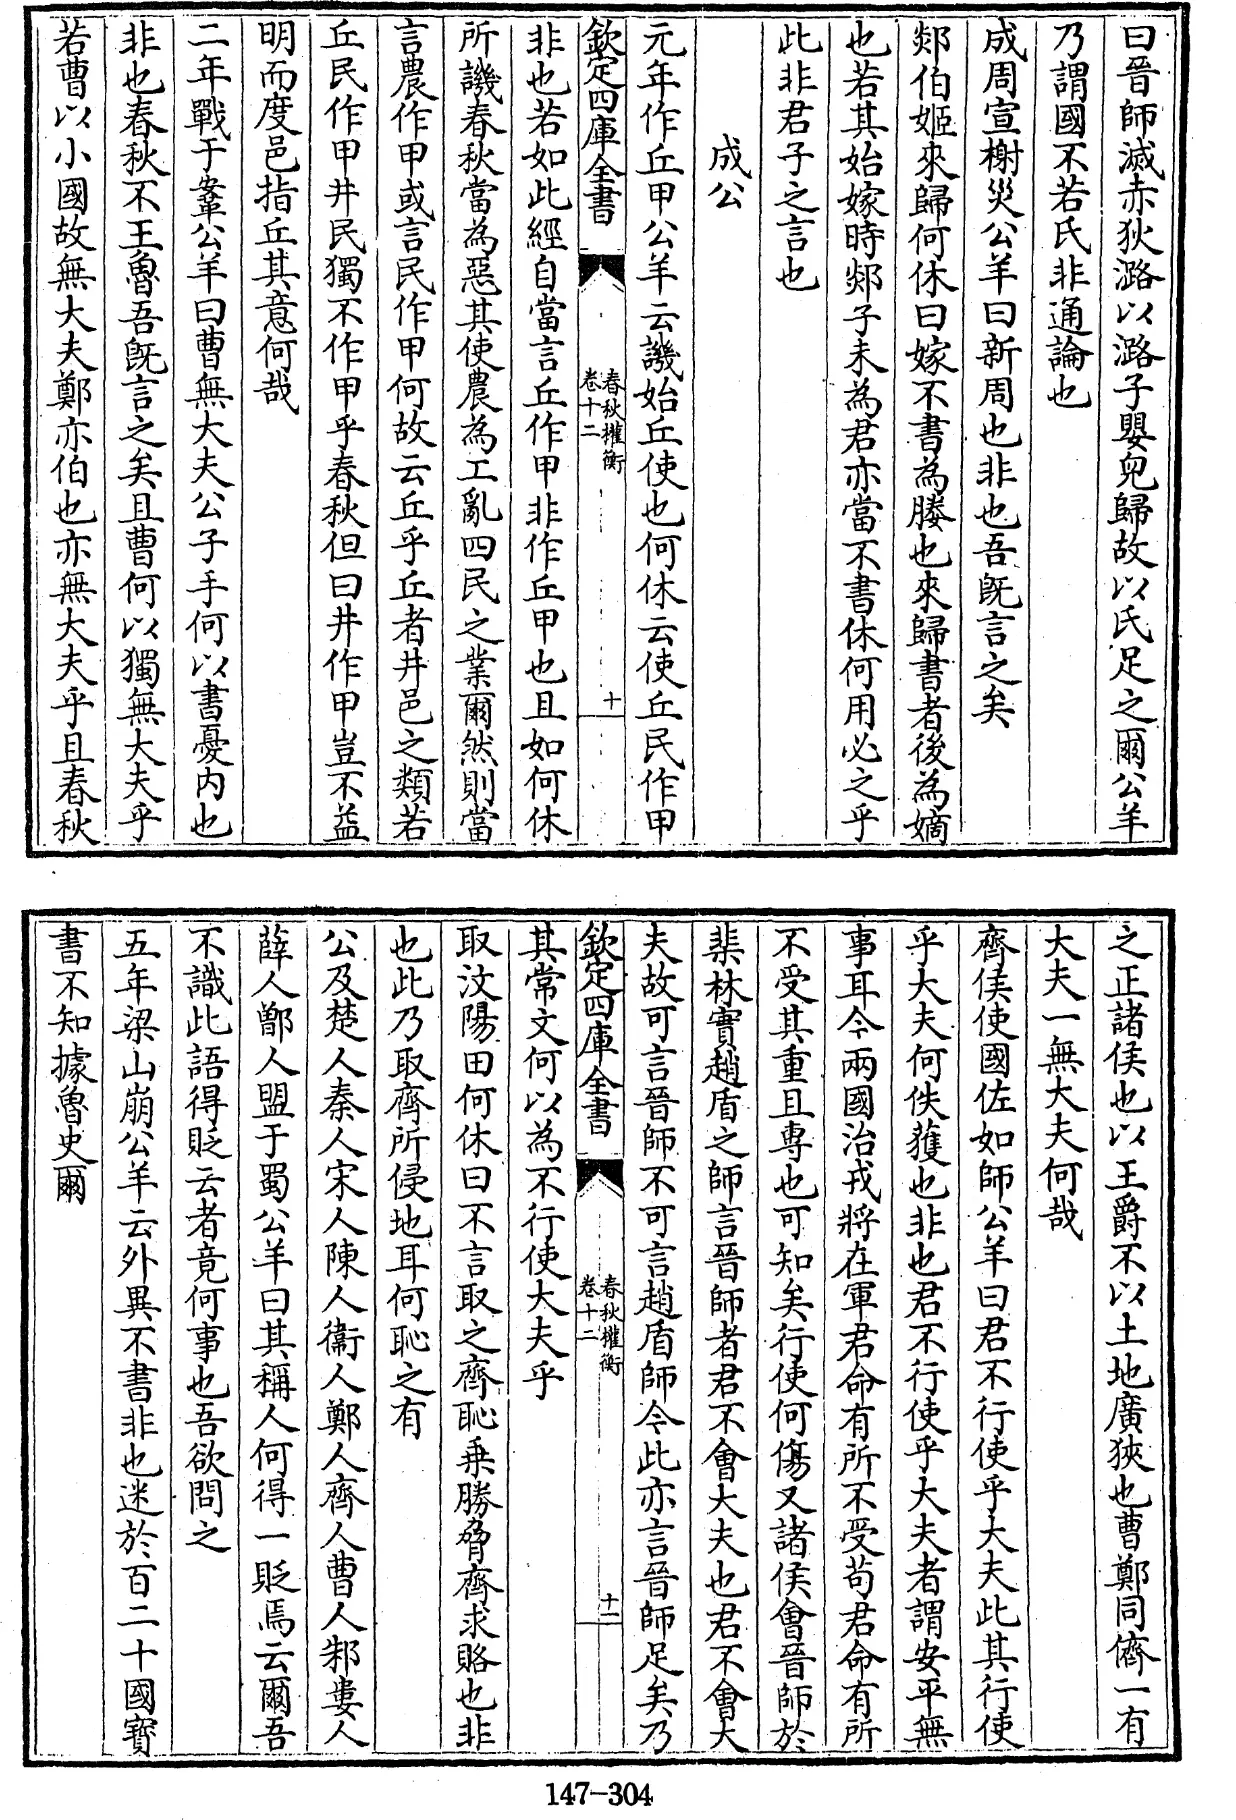 曰晉師滅赤狄潞以潞子嬰兒歸故以氏足之爾公羊
乃謂國不若氏非通論也
成周宣榭災公羊曰新周也非也吾既言之矣
郯伯姬來歸何休曰嫁不書為媵也來歸書者後為嫡
也若其始嫁時郯子未為君亦當不書休何用必之乎
此非君子之言也
成公
元年作丘甲公羊云譏始丘使也何休云使丘民作甲
欽定四庫全書
春秋權衡
卷十二
十
非也若如此經自當言丘作甲非作丘甲也且如何休
所譏春秋當為惡其使農為工亂四民之業爾然則當
言農作甲或言民作甲何故云丘乎丘者井邑之類若
丘民作甲井民獨不作甲乎春秋但曰井作甲豈不益
明而度邑指丘其意何哉
二年戰于鞌公羊曰曹無大夫公子手何以書憂内也
非也春秋不王魯吾既言之矣且曹何以獨無大夫乎
若曹以小國故無大夫鄭亦伯也亦無大夫乎且春秋
之正諸侯也以王爵不以土地廣狹也曹鄭同儕一有
大夫一無大夫何哉
齊侯使國佐如師公羊曰君不行使乎大夫此其行使
乎大夫何佚獲也非也君不行使乎大夫者謂安平無
事耳今兩國治戎將在軍君命有所不受苟君命有所
不受其重且專也可知矣行使何傷又諸侯會晉師於
棐林實趙盾之師言晉師者君不會大夫也君不會大
夫故可言晉師不可言趙盾師令此亦言晉師足矣乃
欽定四庫全書
春秋權衡
卷十二
十一
其常文何以為不行使大夫乎
取汶陽田何休曰不言取之齊恥乗勝脅齊求賂也非
也此乃取齊所侵地耳何恥之有
公及楚人秦人宋人陳人衞人鄭人齊人曹人邾婁人
薛人鄫人盟于蜀公羊曰其稱人何得一貶焉云爾吾
不識此語得貶云者竟何事也吾欲問之
五年梁山崩公羊云外異不書非也迷於百二十國寳
書不知據魯史爾
147-304